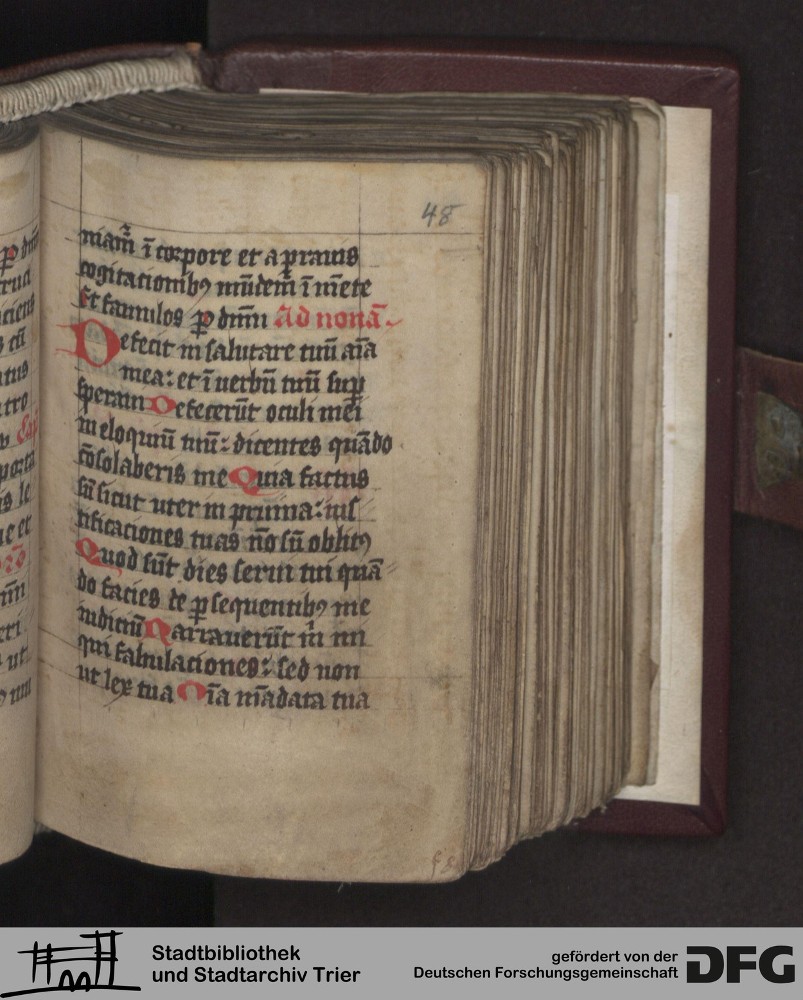 48
niam̄ ī corpore et a prauis
cogitacionibꝯ mūdem̄ ī mēte
Et famulos ꝑ dn̄m Ad nonā.
Defecit in salutare tuū aīa
mea: et ī uerbū tuū suꝑ
speraui Defecerūt oculi mei
in eloquiū tuū: dicentes quādo
cōsolaberis me Quia factus
sū sicut uter in pruina: ius
tificaciones tuas nō sū oblitꝯ
Quod sūt dies serui tui quā
do facies de ꝑsequentibꝯ me
iudiciū Narrauerūt m̄ ini
qui fabulaciones: sed non
ut lex tua Oīa mādata tua
Stadtbibliothek
und Stadtarchiv Trier
gefördert von der
Deutschen Forschungsgemeinschaft
DFG